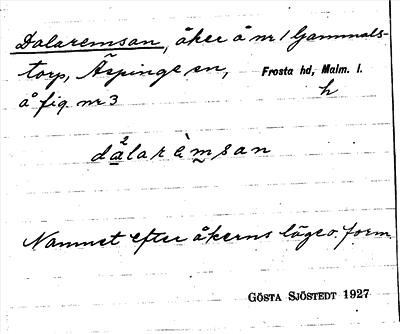 Dalaremsan, åker å nr 1 Gammals-
torp, Äspinge sn, Frosta hd, Malm. l.
å fig. nr 3 h
dalarèmsan
Namnet efter åkerns läge o. form.
GÖSTA SJÖSTEDT 1927